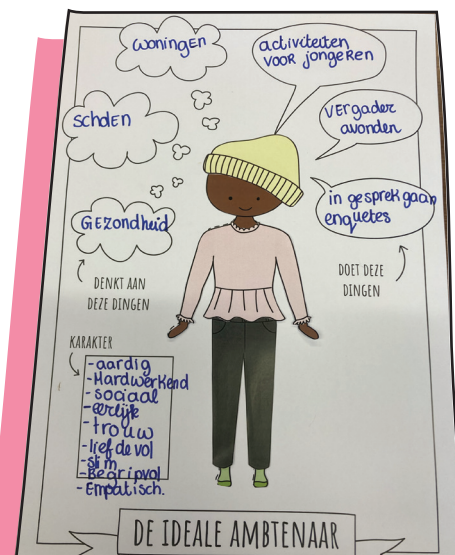 woningen
activiteiten
voor jongeren
vergader
avonden
scholen
in gesprek gaan
enquetes
Gezondheid
DENKT AAN
DEZE DINGEN
DOET DEZE
DINGEN
KARAKTER
-aardig
-Hardwerkend
-sociaal
-eerlijk
-trouw
-liefdevol
-slim
-Begripvol
-Empatisch.
DE IDEALE AMBTENAAR